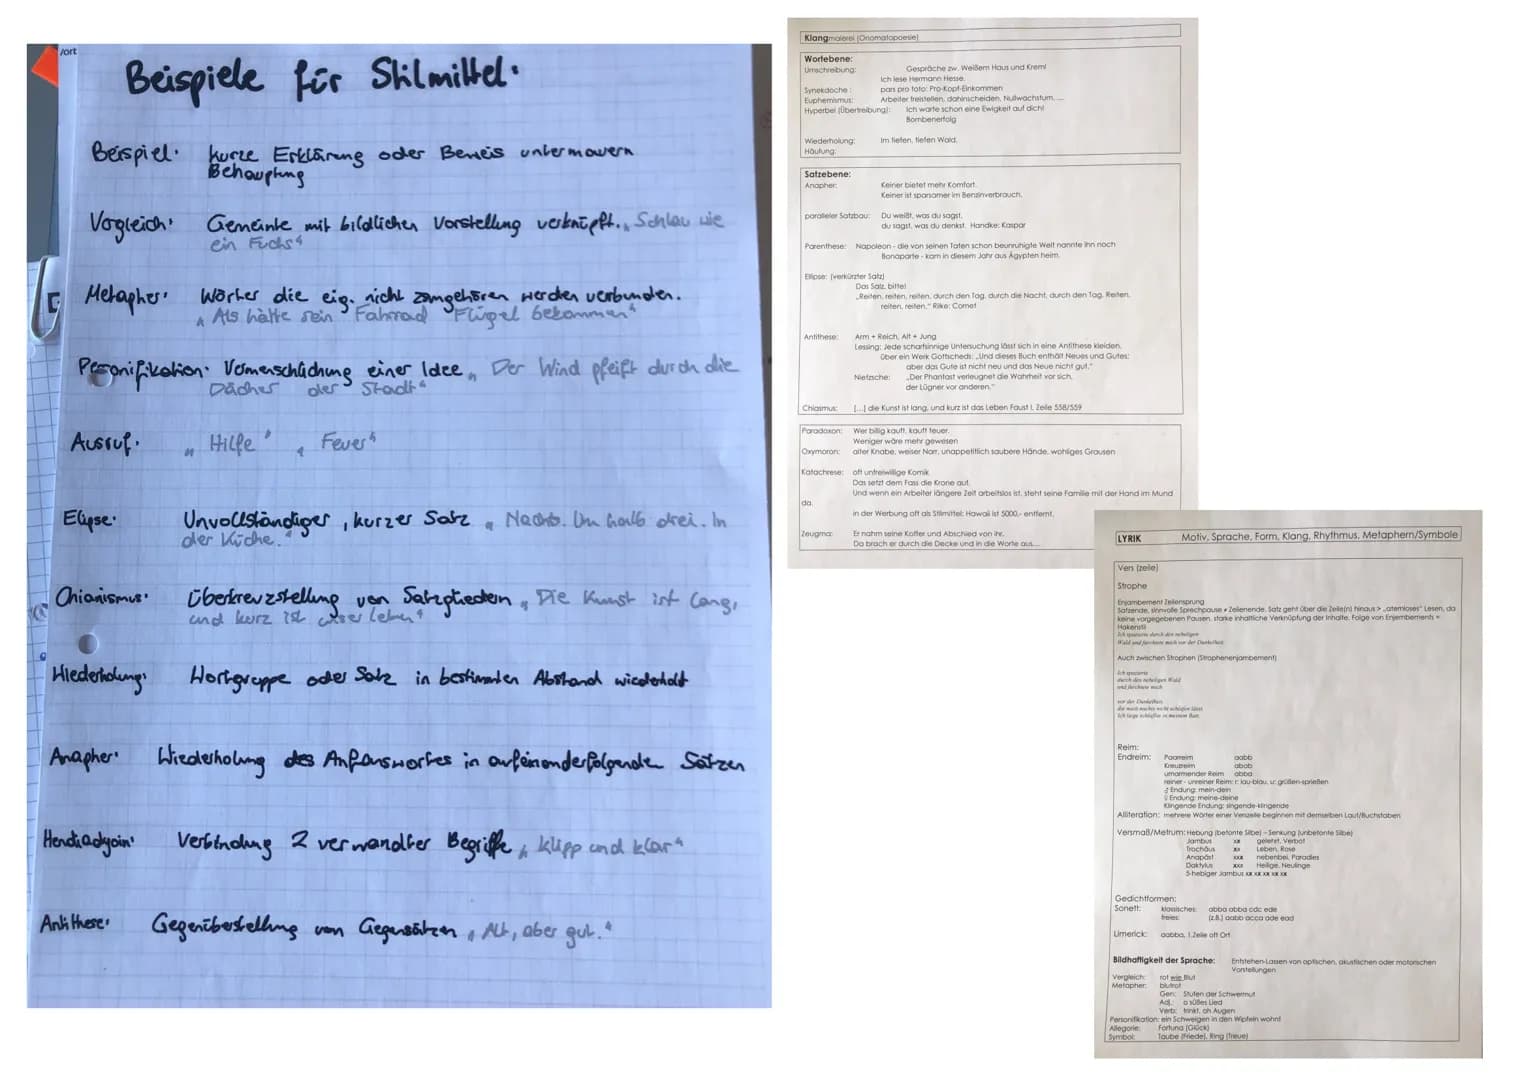 /ort
Beispiele für Stilmittel:
Beispiel: kurze Erklärung oder Beweis untermauern
Behauptung
Vergleich: Gemeinte mit bildlichen Vorstellung verknüpft. „Schlau wie
ein Fuchs"
Metapher: Wörter die eig. nicht zsmgehören werden verbunden.
„Als hätte sein Fahrrad Flügel bekommen"
Personifikation: Vermenschlichung einer Idee „Der Wind pfeift durch die
Dächer der Stadt"
Ausruf: „Hilfe" „Feuer"
Elipse: Unvollständiger, kurzer Satz „Nachts. Um halb drei. In
der Küche."
Chianismus: Überkreuzstellung von Satzgliedern „Die Kunst ist lang,
und kurz ist unser Leben"
Wiederholung: Wortgruppe oder Satz in bestimmten Abstand wiederholt
Anapher: Wiederholung des Anfanswortes in aufeinanderfolgende Sätzen
Hendiadyoin: Verbindung 2 verwandter Begriffe „klipp und klar"
Antithese: Gegenüberstellung von Gegensätzen „Alt, aber gut."
Klangmalerei (Onomatopoesie)
Wortebene:
Umschreibung: Gespräche zw. Weißem Haus und Kreml
Ich lese Hermann Hesse.
Synekdoche: pars pro toto: Pro-Kopf-Einkommen
Euphemismus: Arbeiter freistellen, dahinscheiden, Nullwachstum, ...
Hyperbel (Übertreibung): Ich warte schon eine Ewigkeit auf dich!
Bombenerfolg
Wiederholung: Im tiefen, tiefen Wald.
Häufung:
Satzebene:
Anapher: Keiner bietet mehr Komfort.
Keiner ist sparsamer im Benzinverbrauch.
paralleler Satzbau: Du weißt, was du sagst,
du sagst, was du denkst. Handke: Kaspar
Parenthese: Napoleon - die von seinen Taten schon beunruhigte Welt nannte ihn noch
Bonaparte - kam in diesem Jahr aus Ägypten heim.
Ellipse: (verkürzter Satz)
Das Salz, bitte!
„Reiten, reiten, reiten, durch den Tag, durch die Nacht, durch den Tag. Reiten,
reiten, reiten." Rilke: Cornet
Antithese: Arm + Reich, Alt + Jung
Lessing: Jede scharfsinnige Untersuchung lässt sich in eine Antithese kleiden.
über ein Werk Gottscheds: „Und dieses Buch enthält Neues und Gutes;
aber das Gute ist nicht neu und das Neue nicht gut."
Nietzsche: „Der Phantast verleugnet die Wahrheit vor sich,
der Lügner vor anderen."
Chiasmus: [...] die Kunst ist lang, und kurz ist das Leben Faust I, Zeile 558/559
Paradoxon: Wer billig kauft, kauft teuer.
Weniger wäre mehr gewesen
Oxymoron: alter Knabe, weiser Narr, unappetitlich saubere Hände, wohliges Grausen
Katachrese: oft unfreiwillige Komik
Das setzt dem Fass die Krone auf.
Und wenn ein Arbeiter längere Zeit arbeitslos ist, steht seine Familie mit der Hand im Mund
da.
in der Werbung oft als Stilmittel: Hawaii ist 5000,- entfernt.
Zeugma: Er nahm seine Koffer und Abschied von ihr.
Da brach er durch die Decke und in die Worte aus...
LYRIK Motiv, Sprache, Form, Klang, Rhythmus, Metaphern/Symbole
Vers (zeile)
Strophe
Enjambement Zeilensprung
Satzende, sinnvolle Sprechpause ≠ Zeilenende. Satz geht über die Zeile(n) hinaus > „atemloses" Lesen, da
keine vorgegebenen Pausen, starke inhaltliche Verknüpfung der Inhalte. Folge von Enjembements =
Hakenstil
Ich spazierte durch den nebeligen
Wald und fürchtete mich vor der Dunkelheit
Auch zwischen Strophen (Strophenenjambement)
Ich spazierte
durch den nebeligen Wald
und fürchtete mich
vor der Dunkelheit
die mich nachts nicht schlafen lässt
Ich liege schlaflos in meinem Bett.
Reim:
Endreim: Paarreim aabb
Kreuzreim abab
umarmender Reim abba
reiner - unreiner Reim: r: lau-blau, u: grüßen-sprießen
♂ Endung: mein-dein
♀ Endung: meine-deine
Klingende Endung: singende-klingende
Alliteration: mehrere Wörter einer Verszeile beginnen mit demselben Laut/Buchstaben
Versmaß/Metrum: Hebung (betonte Silbe) – Senkung (unbetonte Silbe)
Jambus xx gelehrt, Verbot
Trochäus xx Leben, Rose
Anapäst xxx nebenbei, Paradies
Daktylus xxx Heilige, Neulinge
5-hebiger Jambus xx xx xx xx xx
Gedichtformen:
Sonett: klassisches: abba abba cdc ede
freies: (z.B.) aabb acca ade ead
Limerick: aabba, 1.Zeile oft Ort
Bildhaftigkeit der Sprache: Entstehen-Lassen von optischen, akustischen oder motorischen
Vorstellungen
Vergleich: rot wie Blut
Metapher: blutrot
Gen: Stufen der Schwermut
Adj.: o süßes Lied
Verb: trinkt, oh Augen
Personifikation: ein Schweigen in den Wipfeln wohnt
Allegorie: Fortuna (Glück)
Symbol: Taube (Friede), Ring (Treue)